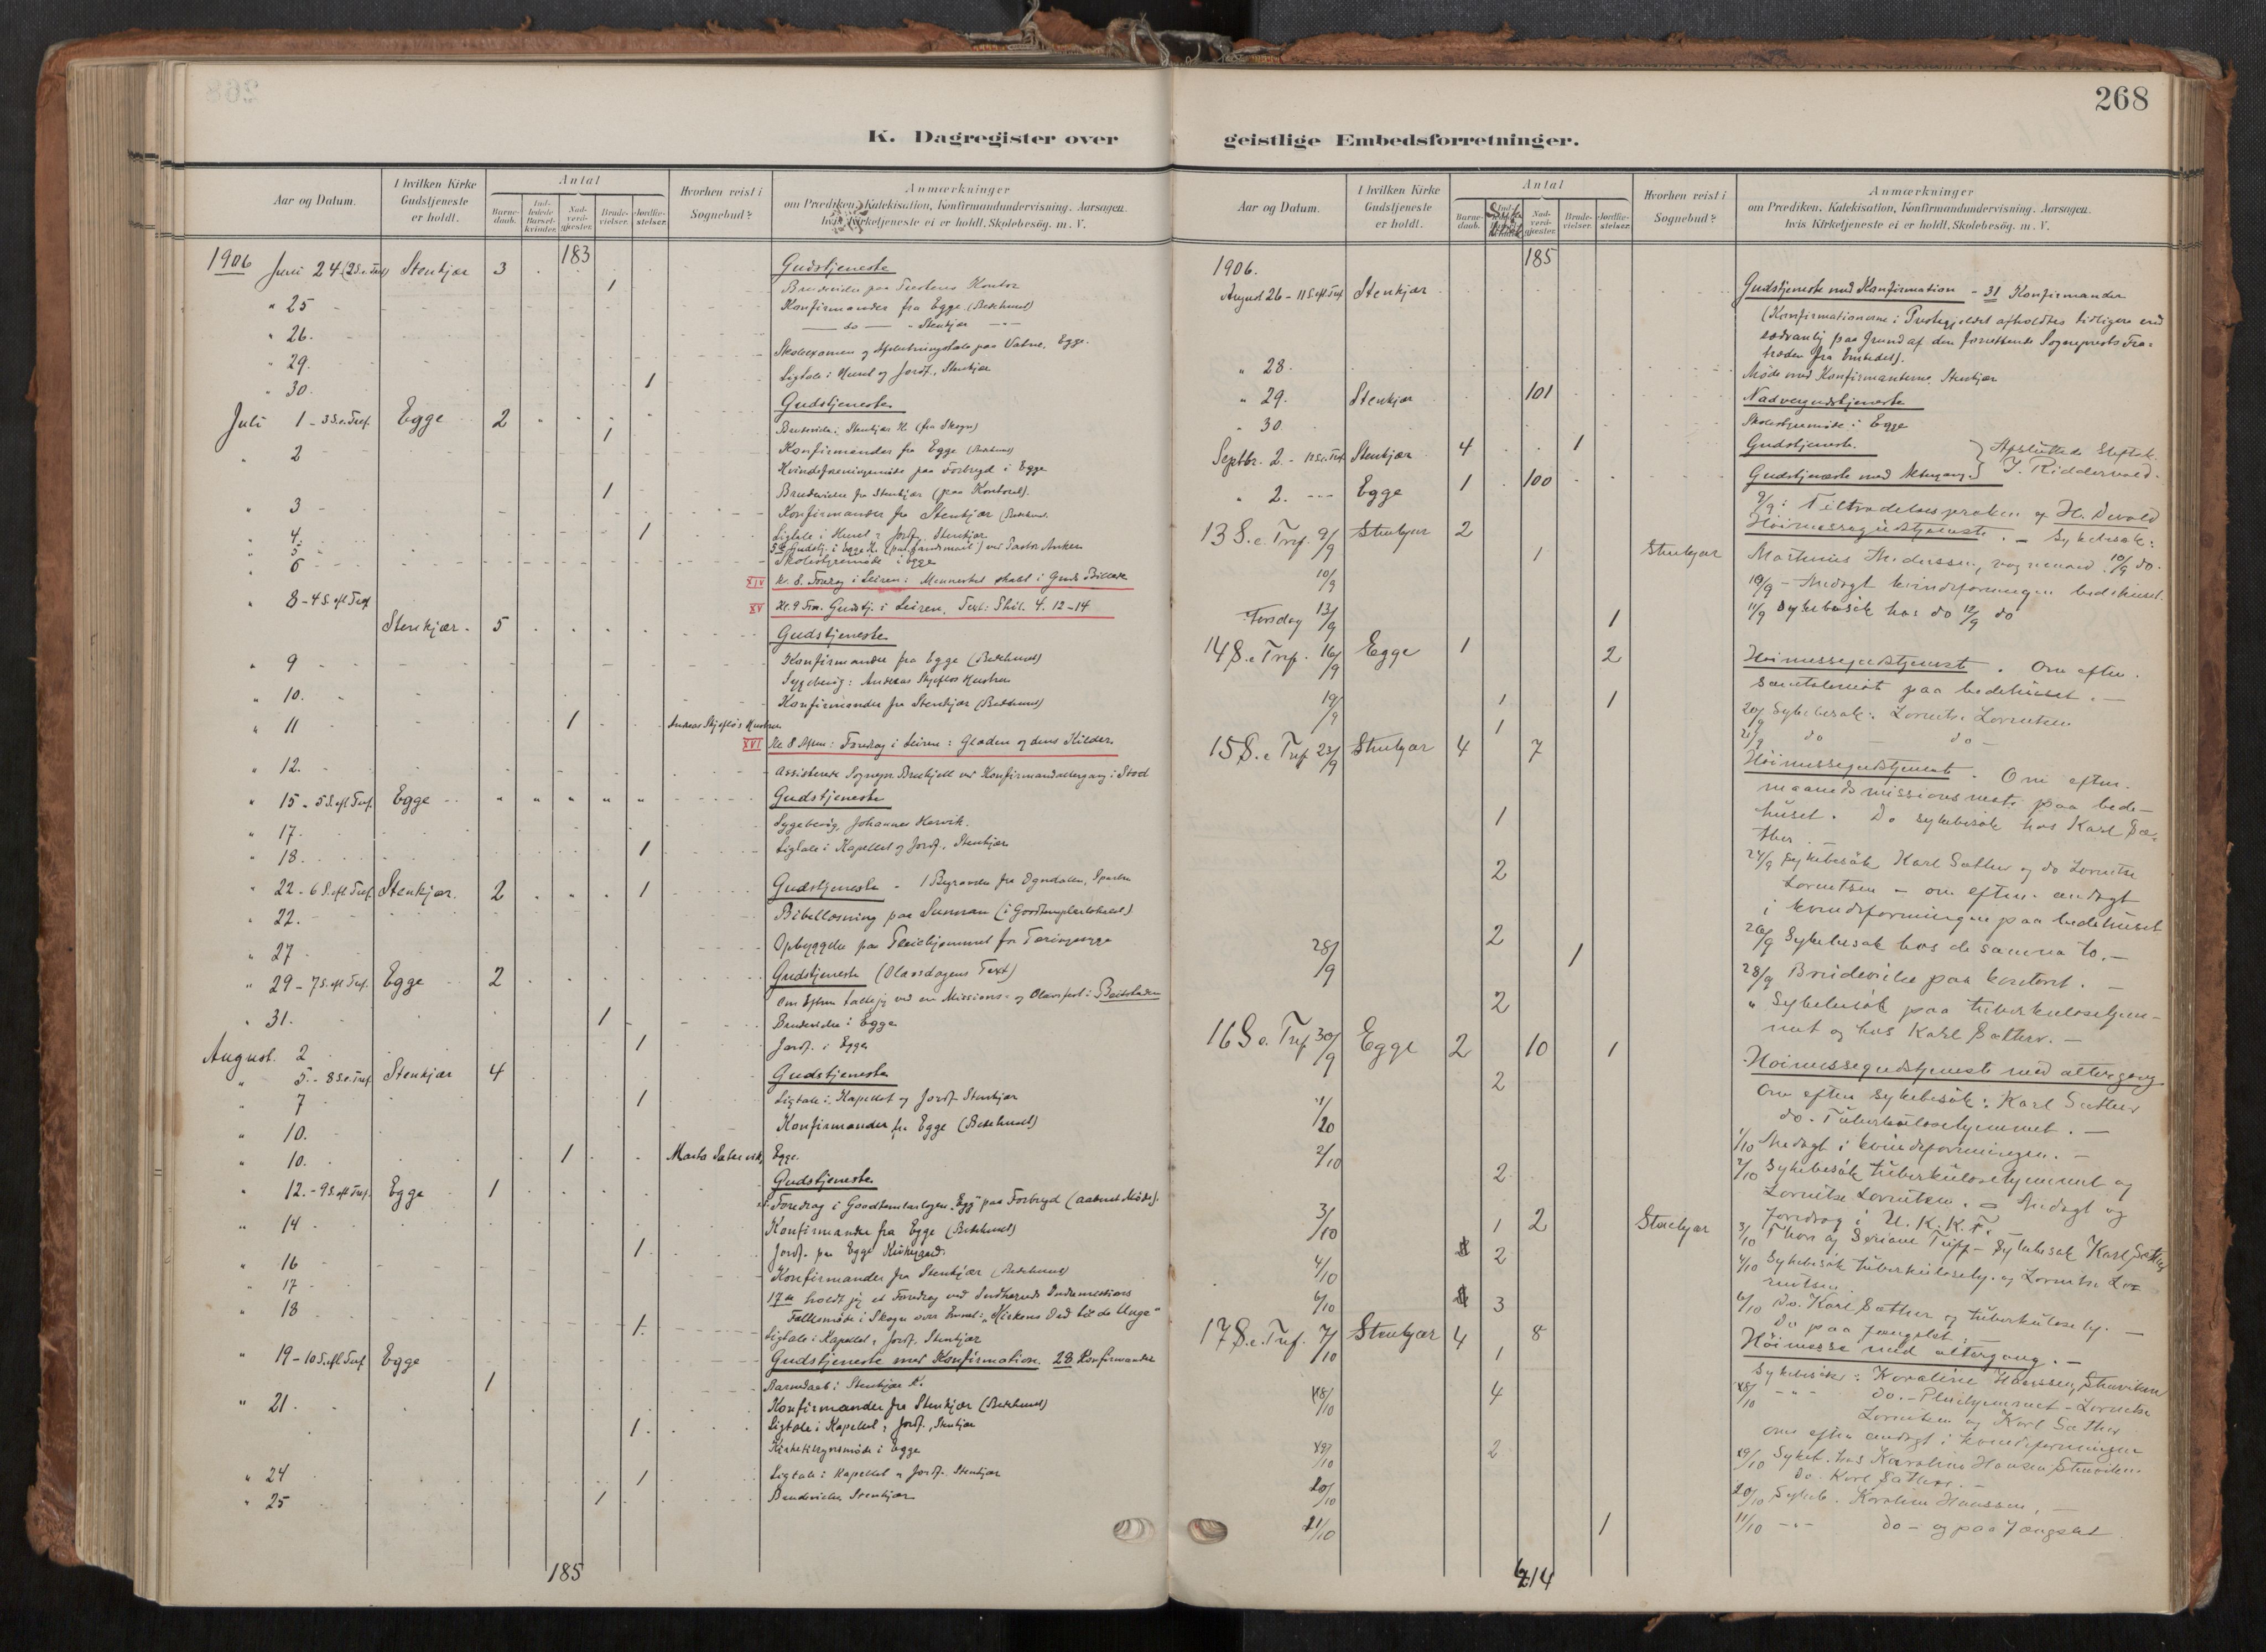 268
K. Dagregister over geistlige Embedsforretninger.
Aar og Datum.
I hvilken Kirke Gudstjeneste er holdt.
Antal
Barne-daab.
Ind-ledede Barsel-kvinder.
Nad-verd-gjæster.
Brude-vielser.
Jordfæ-stelser.
Hvorhen reist i Sognebud?
Anmærkninger
om Prædiken, Katekisation, Konfirmandundervisning. Aarsagen,
hvis Kirketjeneste ei er holdt, Skolebesög. m. V.
183
1906 Juni 24 (2 S. e. Tref) Stenkjær 3 Gudstjeneste
1 Brudevielse paa Kontor
" 25 Konfirmander fra Egge (Bedehuset)
" 26. do " Stenkjær
" 29. Skoleexamen og Afslutningstale paa Egge.
" 30. 1 Ligtale i Huset og Jordf. Stenkjær
Juli 1 - 3 S. e. Tref. Egge 2 Gudstjeneste
1 Brudevielse i Stenkjær K. (fra Skogn)
" 2 Konfirmander fra Egge (Bedehuset)
Kvindeforeningsmøde paa Forbryd i Egge
1 Brudevielse fra Stenkjær (paa Kontoret).
" 3 Konfirmander fra Stenkjær (Bedehuset)
" 4. 1 Ligtale i Huset, Jordf. Stenkjær
" 5 Gudstj. i Egge K. ved Pastor Anker
" 6 Skolestyremøde i Egge
XIV Kl. 8. Foredrag i Leiren: Mennesket skabt i Guds Billede
" 8 - 4 S. eft Tref XV Kl. 9 Fm. Gudstj. i Leiren. Text: Phil. 4. 12-14
Stenkjær. 5 Gudstjeneste
" 9 Konfirmander fra Egge (Bedehuset)
Sygebesøg: Andreas Hustru
" 10. Konfirmander fra Stenkjær (Bedehuset)
" 11 1 Andreas Hustru
XVI Kl. 8 Aften: Foredrag i Leiren: Glæden og dens Kilder.
" 12. Assisterede Sognepr. ved Konfirmandaltergang i Stod
" 15 - 5 S. eft Tref. Egge Gudstjeneste
" 17. Sygebesøg, Johannes
" 18. 1 Ligtale i Kapellet og Jordf. Stenkjær
" 22 - 6 S. eft Tref. Stenkjær. 2 1 Gudstjeneste - 1 fra Ogndalen, Sparbu
" 22. Bibellæsning paa Sunnan (i Goodtemplarlokalet)
" 27 Opbyggelse paa Pleiehjemmet for Tæringssyge
" 29 - 7 S. eft Tref. Egge 2 Gudstjeneste (Olavsdagens Text)
Om Eftm talte jeg ved en Missions- og Olavsfest i Beitstaden
" 31. 1 Brudevielse i Egge
August. 2 1 Jordf. i Egge
" 5. - 8 S. e. Tref. Stenkjær 4 Gudstjeneste
" 7 1 Ligtale i Kapellet og Jordf. Stenkjær
" 10. Konfirmander fra Egge (Bedehuset)
" 10. 1 Marta Egge.
" 12. - 9 S. eft Tref. Egge 1 Gudstjeneste
Foredrag i Goodtemlarlogen "Egg" paa Forbryd (aabent Møde).
" 14 Konfirmander fra Egge (Bedehuset)
1 Jordf. paa Egge Kirkegaard.
" 16 Konfirmander fra Stenkjær (Bedehuset)
" 17 17de holdt jeg et Foredrag ved Indherreds
" 18 Fællesmøde i Skogn over Emnet: "Kirkens Ord til de Unge"
1. Ligtale i Kapellet, Jordf. Stenkjær
" 19 - 10 S. eft Tref Egge Gudstjeneste med Konfirmation. 28 Konfirmander
1 Barnedaab i Stenkjær K.
" 21. Konfirmander fra Stenkjær (Bedehuset)
1. Ligtale i Kapellet, Jordf., Stenkjær
Kirketilsynsmøde i Egge
" 24 1 Ligtale i Kapellet og Jordf. Stenkjær
" 25 1 Brudevielse Stenkjær
185
268
Aar og Datum.
I hvilken Kirke Gudstjeneste er holdt.
Antal
Barne-daab.
Nad-verd-gjæster.
Brude-vielser.
Jordfæ-stelser.
Hvorhen reist i Sognebud?
Anmærkninger
om Prædiken, Katekisation, Konfirmandundervisning. Aarsagen,
hvis Kirketjeneste ei er holdt, Skolebesög. m. V.
1906. 185
August 26 - 11 S. eft Tref Stenkjær Gudstjeneste med Konfirmation - 31 Konfirmander
(Konfirmationerne i Prestegjeldet afholdtes tidligere end
sædvanlig paa Grund af den forrettende Sogneprests Fra-
træden fra Embedet).
" 28. Møde med Konfirmanterne, Stenkjær
" 29. Stenkjær 101 Nadvergudstjeneste
" 30 Skolestyremøde i Egge
Septbr. 2. - 12 S. e. Tref. Stenkjær 4 1 Gudstjeneste.
" 2. Egge 1 100 Gudstjeneste med Altergang.
Afsluttede
J. Riddervold.
9/9: Tiltrædelsespræken af H. Devold
13 S. e. Tref. 9/9 Stenkjær 2 Höimessegudstjeneste. - Sykebesøk:
1 Stenkjær Martinus Andersen, 10/9 do.
10/9 10/9 - Andagt kvindeforeningen bedehuset.
Torsdag 13/9 1 11/9 Sykebesøk hos do 12/9 do
14 S. e Tref. 16/9 Egge 1 2 Höimessegudstjeneste. Om eftm.
samtalemøte paa bedehuset.
19/9 1 1 20/9 Sykebesøk: Lorentse Lorentsen
1 21/9 do do
15 S. e Tref 23/9 Stenkjær 4 7 Höimessegudstjeneste. Om eftm.
maanedsmissionsmøte paa bede-
1 huset. Do sykebesøk hos Karl Sæ-
ther.
2 24/9 Sykebesøk Karl Sæther og do Lorentse
Lorentsen - om eftm. andagt
i kvindeforeningen paa bedehuset
2 26/9 Sykebesøk hos de samme to.
28/9 1 28/9 Brudevielse paa kontoret.
2 " Sykebesøk paa tuberkulosehjem-
met og hos Karl Sæther.
16 S e. Tref 30/9 Egge 2 10 1 Höimessegudstjeneste med altergang
2 Om eftm sykebesøk: Karl Sæther
do. Tuberkulosehjemmet.
1/10 Andagt i kvindeforeningen.
2/10 2 2/10 Sykebesøk tuberkulosehjemmet og
Lorentse Lorentsen. Andagt og
foredrag i U.K.K.F.
3/10 1 2 Stenkjær 3/10 Thore og - Sykebesøk Karl Sæther
4/10 2 4/10 Sykebesøk tuberkulosehj. og Lorentse Lo-
rentsen
6/10 3 6/10 Do. Karl Sæther og tuberkulosehj.
Do paa fængslet.
17 S. e. Tref. 7/10 Stenkjær 4 8 Höimesse med altergang.
1 Sykebesøk: Karoline Hanssen,
4 do. - Pleiehjemmet - Lorentse
Lorentsen og Karl Sæther
om eftm andagt i kvindeforeningen
2 Sykeb. hos Karoline Hansen
do. Karl Sæther.
Sykeb. Karoline Hanssen.
1 11/10 do - og paa fængslet
214